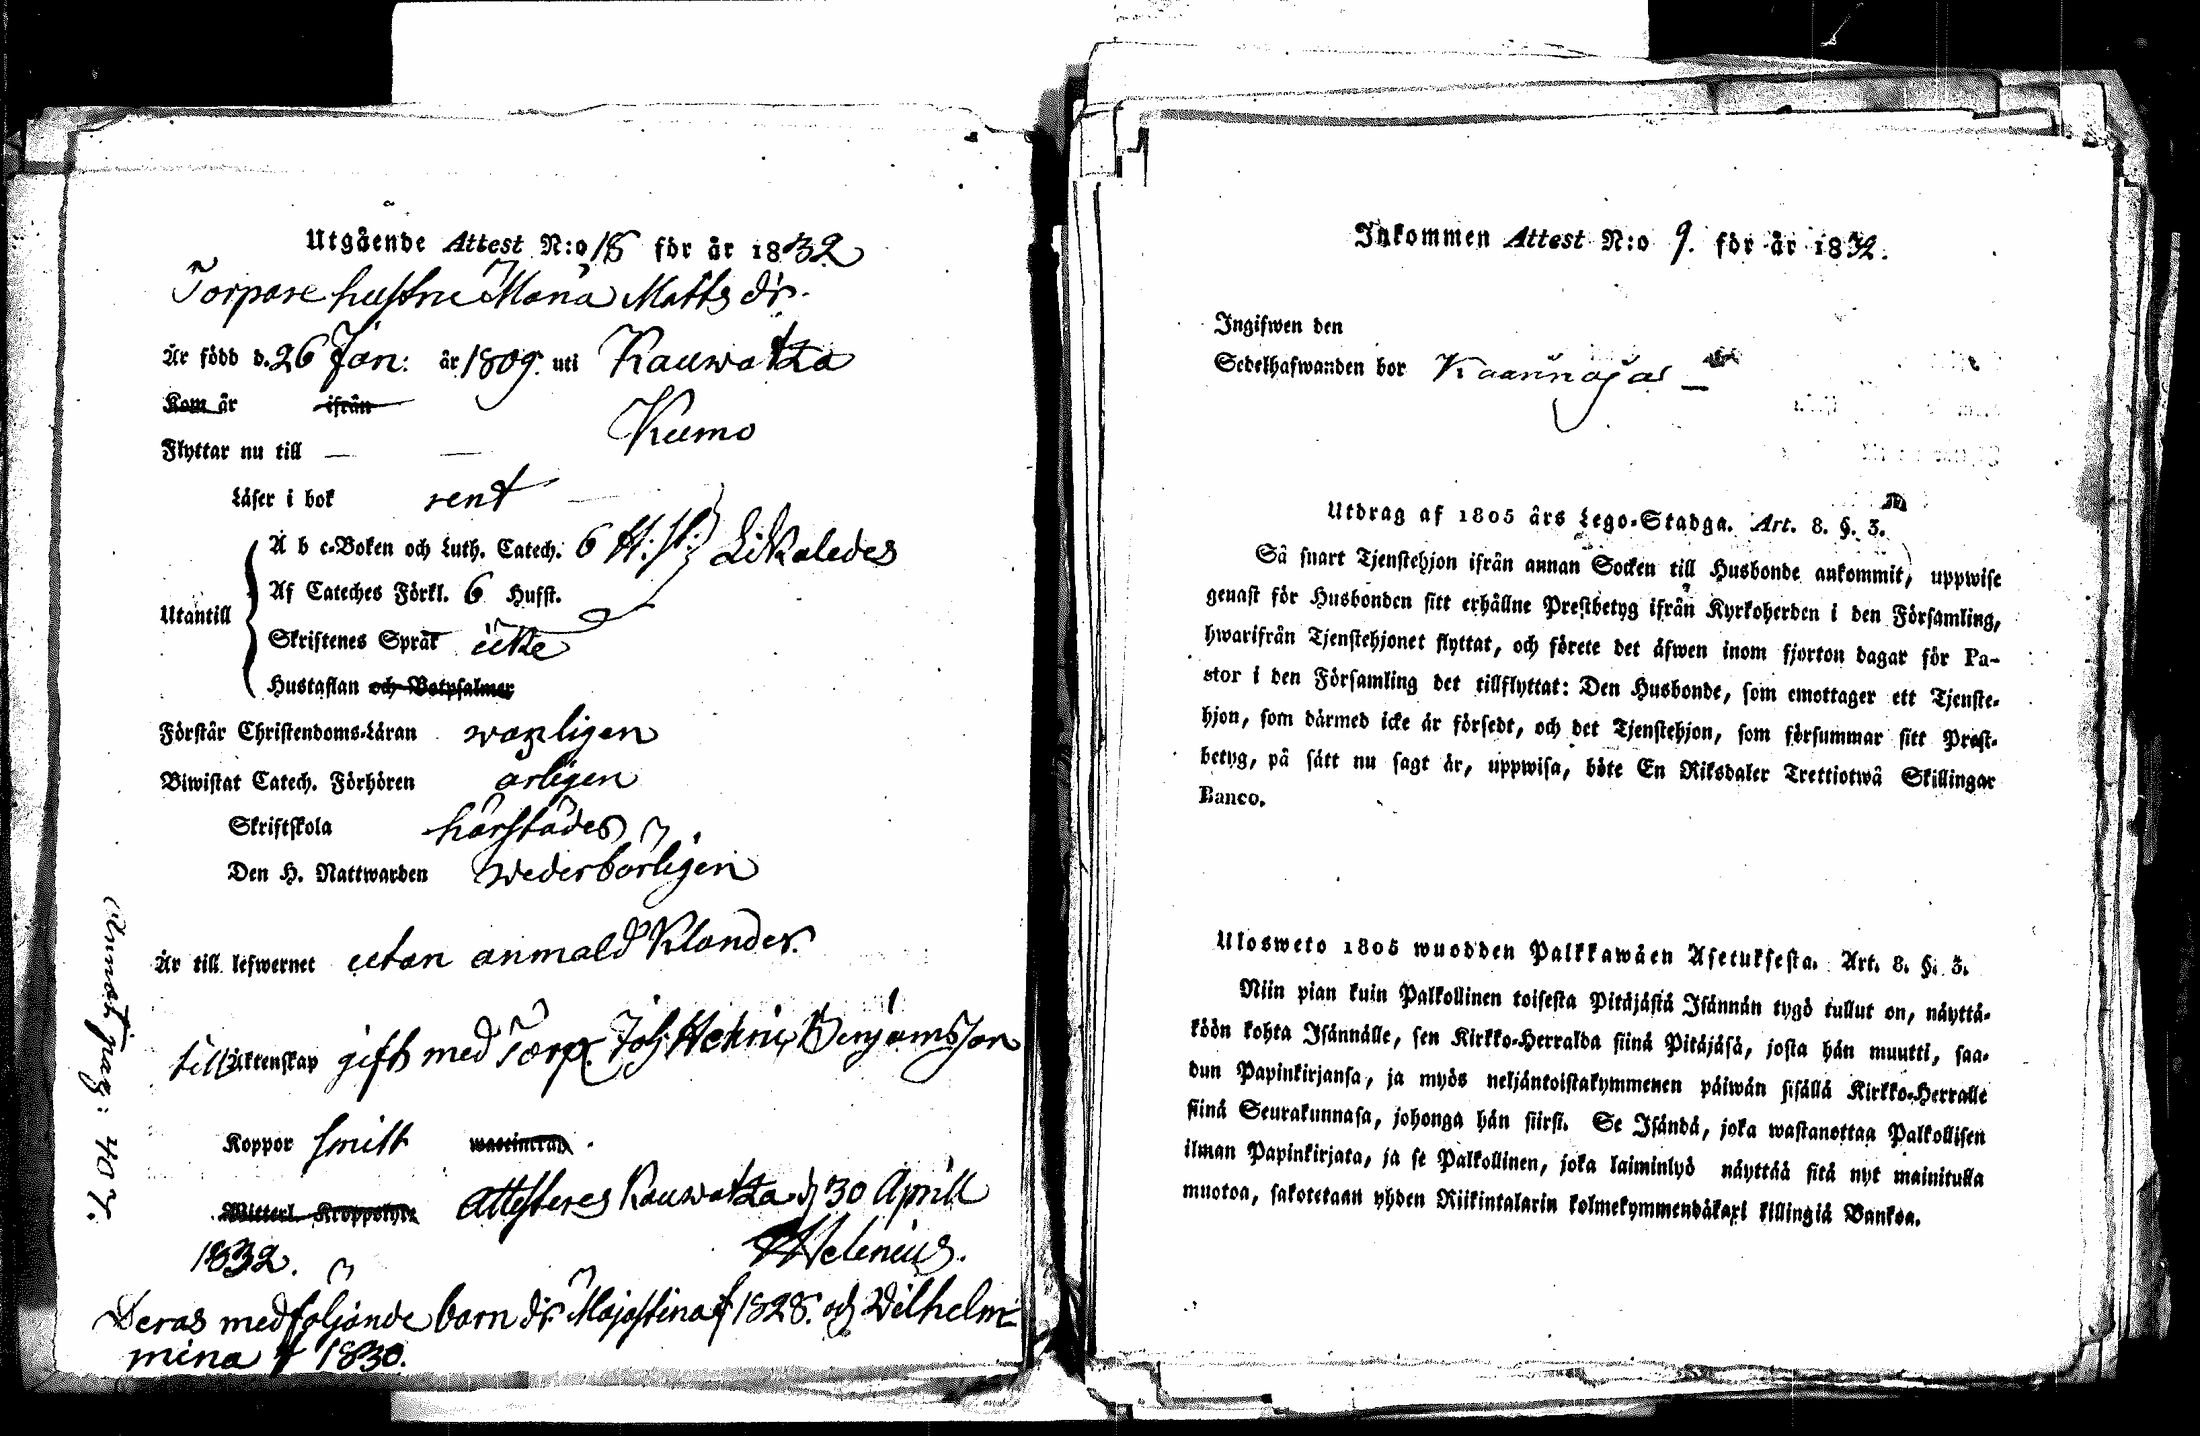 Utgående Attest N:o 18 för år 1832
Torpare hustru Maria Matts dr.
Är född d. 26 Jan: år 1809. uti Kauwatza
Kom år ifrån
Flyttar nu till — — Kumo
Läser i bok rent
A b c-Boken och Luth. Catech. 6 H: st: Likaledes
Af Cateches Förkl. 6 Hufst.
Utantill
Skriftenes Språk icke
Hustaflan och Botpsalmer
Förstår Christendoms-Läran wanligen
Biwistat Catech. Förhören årligen
Skriftskola härstädes
Den H. Nattwarden wederbörligen
Är till lefwernet utan anmäld Klander.
till Äktenskap gift med Torp. Joh. Henric Benjamsson
Koppor Smitt
Witterl. Kroppslyte Attesteras Kauwatza d 30 April
1832. Helenius.
Deras medföljande barn dr. Majastina f 1828. och Wilhelm
mina f 1830.
pag: 407.
Inkommen Attest N:o 9. för år 1832.
Ingifwen den
Sedelhafwanden bor Kaannoja
Utdrag af 1805 års Lego-Stadga. Art. 8. §. 3.
Så snart Tjenstehjon ifrån annan Socken till Husbonde ankommit, uppwise
genast för Husbonden sitt erhållne Prestbetyg ifrån Kyrkoherden i den Församling,
hwarifrån Tjenstehjonet flyttat, och förete det äfwen inom fjorton dagar för Pa-
stor i den Församling det tillflyttat: Den Husbonde, som emottager ett Tjenste-
hjon, som därmed icke är försedt, och det Tjenstehjon, som försummar sitt Prest-
betyg, på sätt nu sagt är, uppwisa, böte En Riksdaler Trettiotwå Skillingar
Banco.
Ulosweto 1805 wuodden Palkkawäen Asetuksesta. Art. 8. §. 3.
Niin pian kuin Palkollinen toisesta Pitäjästä Isännän tygö tullut on, näyttä-
köön kohta Isännälle, sen Kirkko-Herralda siinä Pitäjäsä, josta hän muutti, saa-
dun Papinkirjansa, ja myös neljäntoistakymmenen päiwän sisällä Kirkko-Herralle
siinä Seurakunnasa, johonga hän siirsi. Se Isändä, joka wastanottaa Palkollisen
ilman Papinkirjata, ja se Palkollinen, joka laiminlyö näyttää sitä nyt mainitulla
muotoa, sakotetaan yhden Riikintalarin kolmekymmendäkaxi killingiä Bankoa.